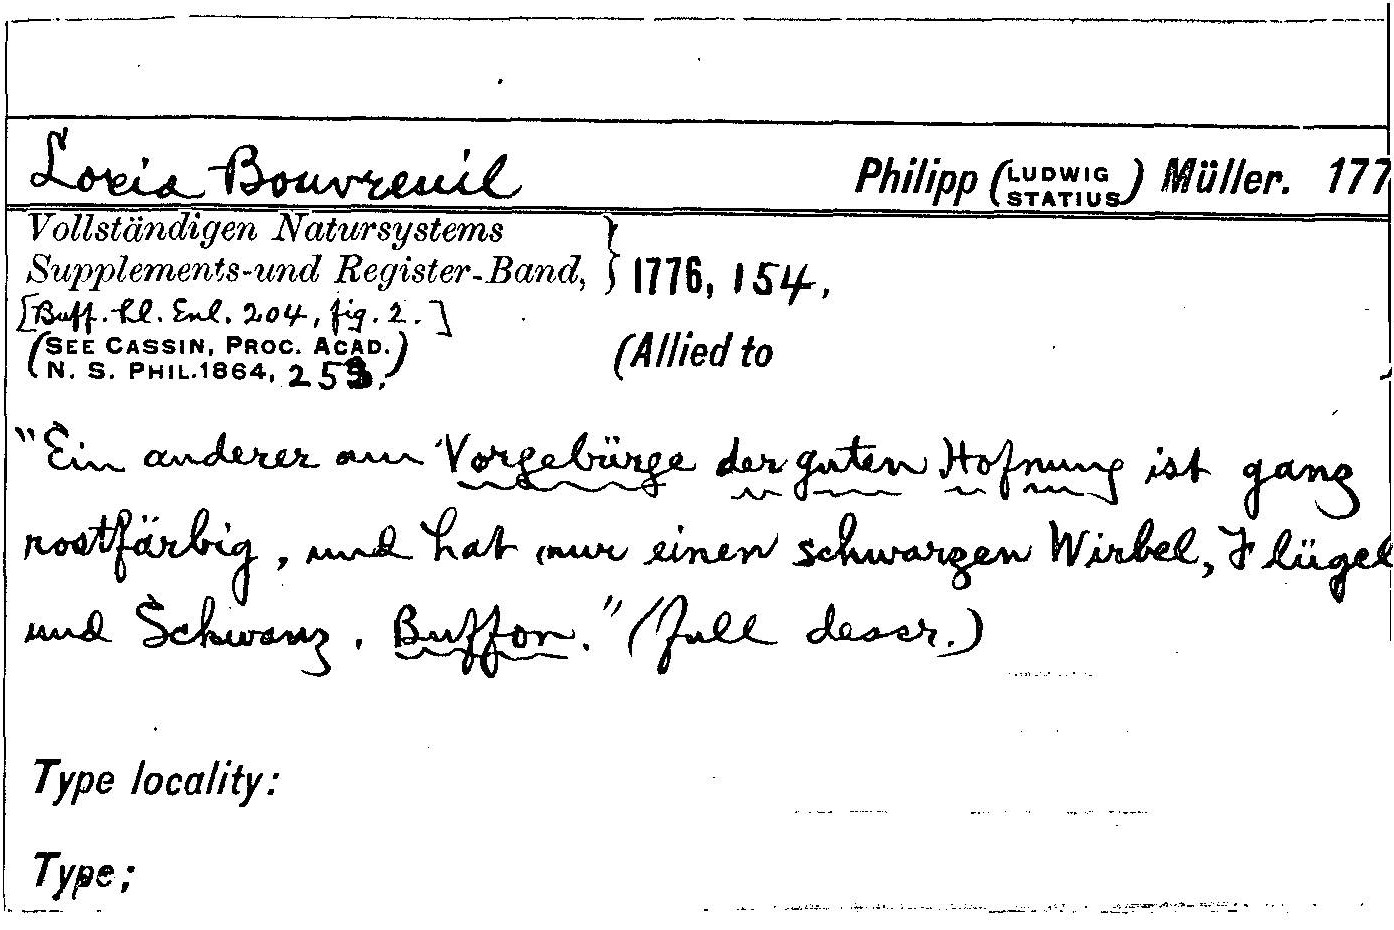 Loxia Bouvreuil Philipp (LUDWIG STATIUS) Müller. 177
Vollständigen Natursystems
Supplements-und Register-Band, } 1776, 154.
[Buff. Pl. Enl. 204, fig. 2.]
(SEE CASSIN, PROC. ACAD.
N. S. PHIL. 1864, 253.) (Allied to )
"Ein anderer am Vorgebürge der guten Hofnung ist ganz
rostfärbig, und hat nur einen schwarzen Wirbel, Flügel
und Schwanz. Buffon." (full descr.)
Type locality:
Type;